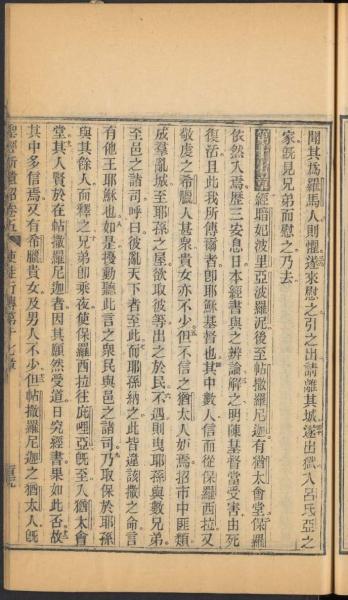 聞其為羅馬人則懼遂來慰之引之出請離其城遂出獄入呂氏亞之
家既見兄弟而慰之乃去
第十七章經暗妃波里亞破羅泥後至帖撒羅尼迦有猶太會堂保羅
依然入焉歷三安息日本經書與之辨論解之明陳基督當受害由死
復活且此我所傳爾者即耶穌基督也其中數人信而從保羅西拉又
敬虔之希臘人甚衆貴女亦不少但不信之猶太人妒焉招市中匪類
成羣亂城至耶孫之屋欲取彼等出之於民不遇則曳耶孫與數兄弟
至邑之諸司呼曰彼亂天下者至此而耶孫納之此皆違該撒之命言
有他王耶穌也如是擾動聽此言之衆民與邑之諸司乃取保於耶孫
與其餘人而釋之兄弟即乘夜使保羅西拉往庇哩亞既至入猶太會
堂其人賢於在帖撒羅尼迦者因其願然受道日究經書果如此否故
其中多信焉又有希臘貴女及男人不少但帖撒羅尼迦之猶太人既
聖經新遺詔卷五 使徒行傳第十七章